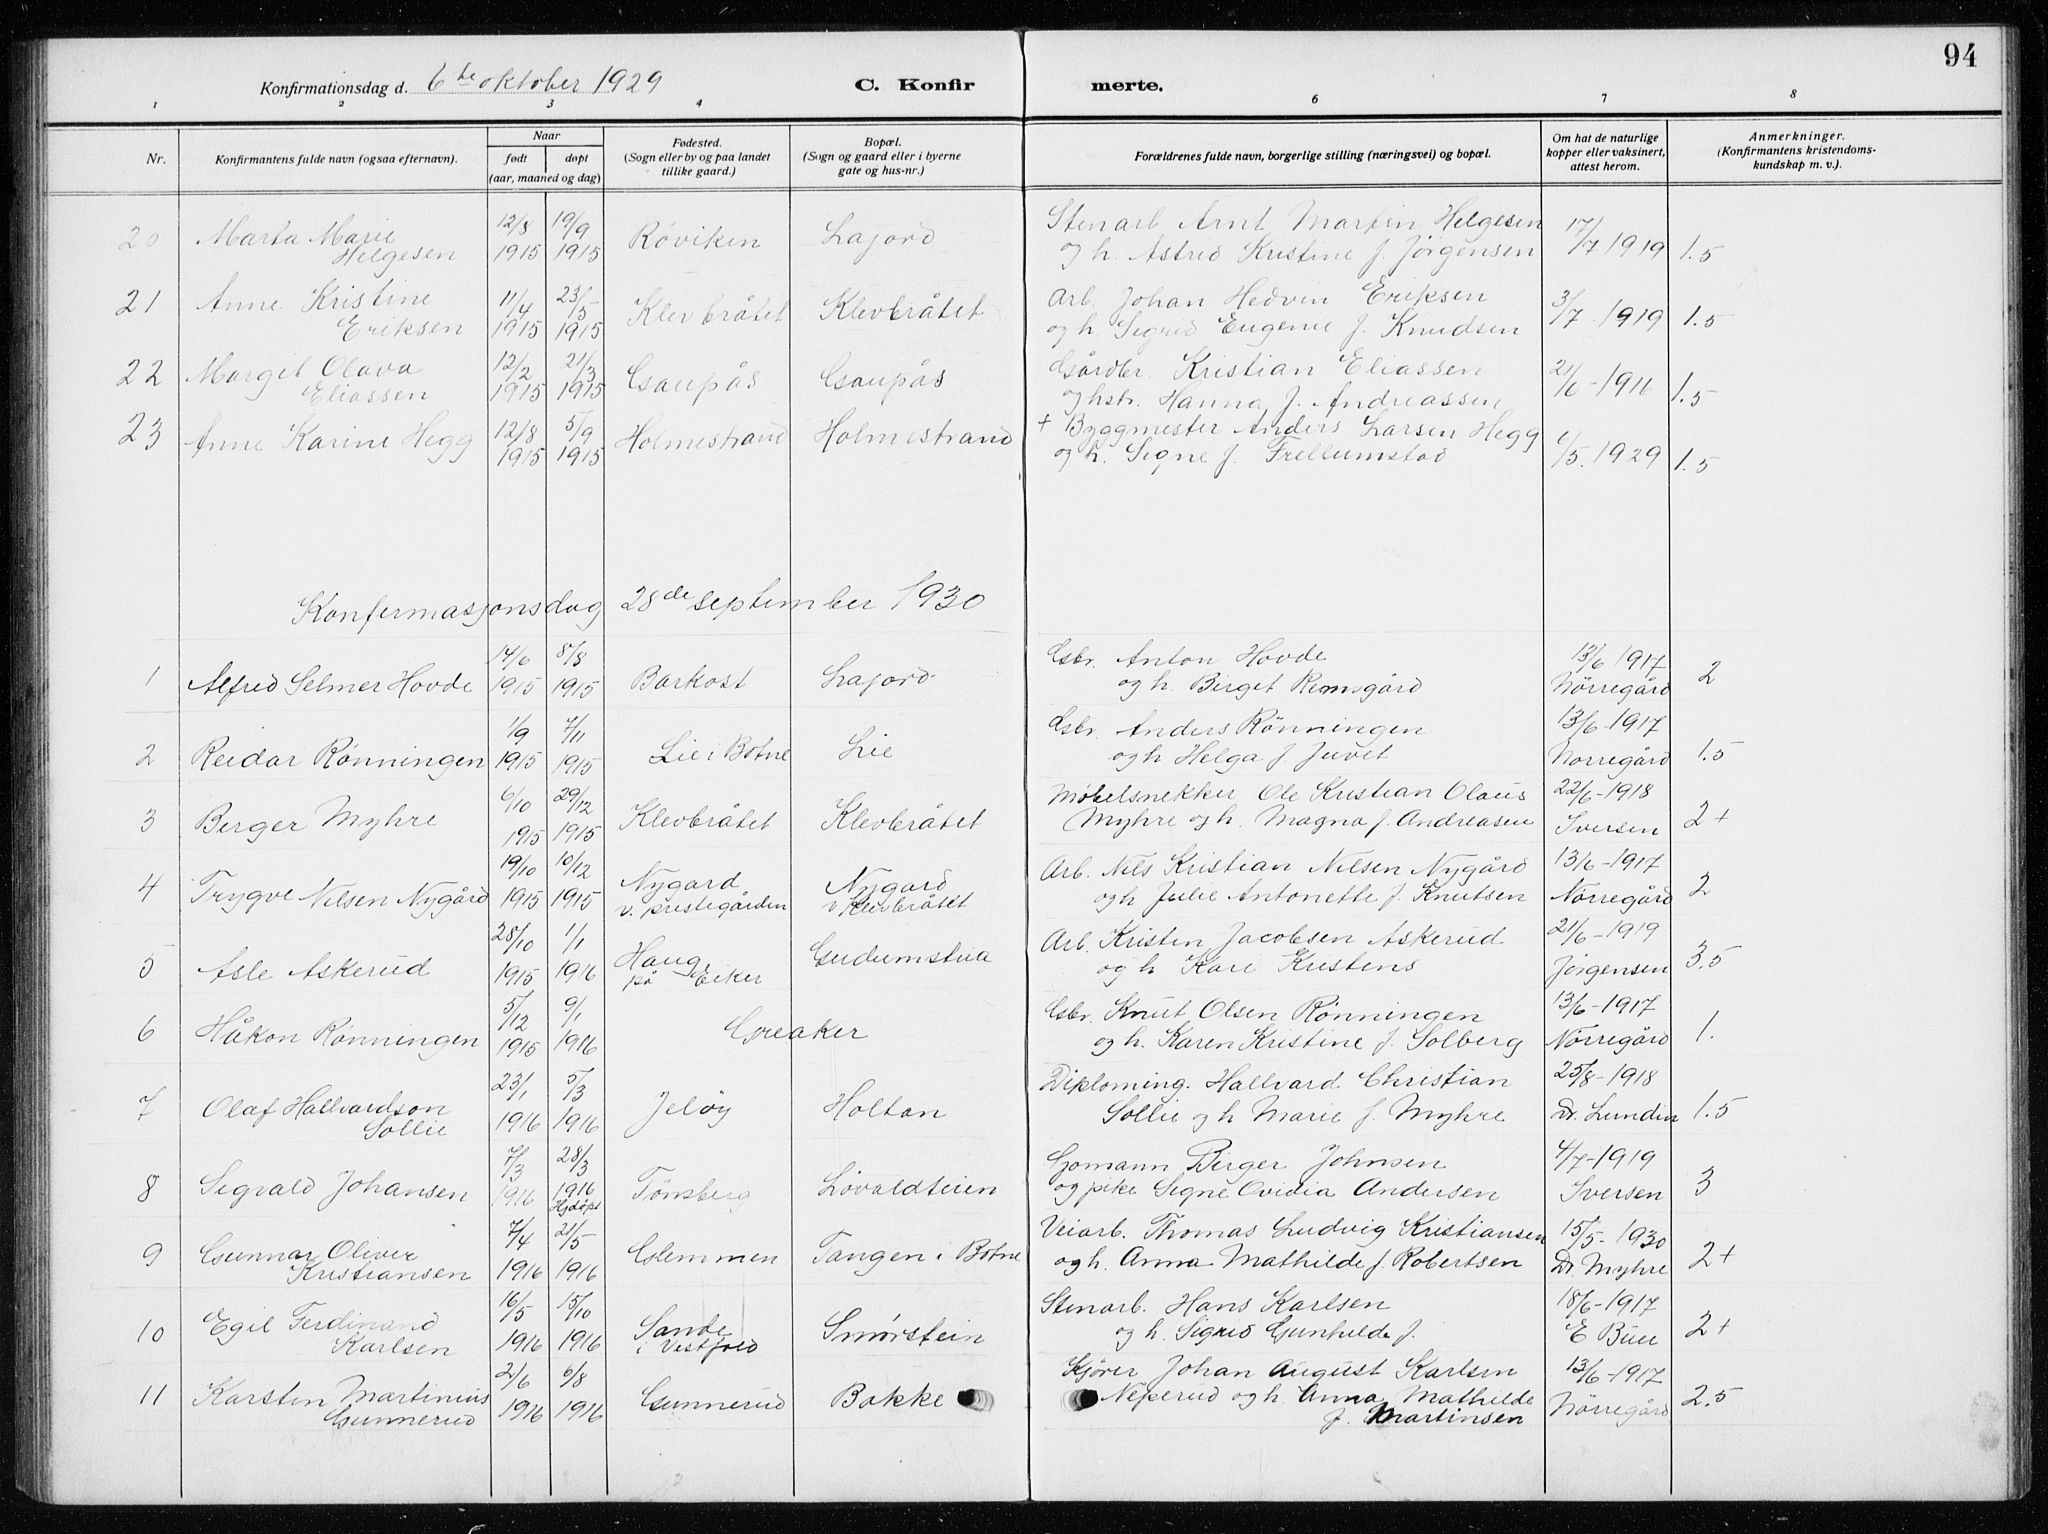 94
Konfirmationsdag d. 6te oktober 1929 C. Konfirmerte.
1 2 3 4 6 7 8
Nr. Konfirmantens fulde navn (ogsaa efternavn). Naar født døpt (aar, maaned og dag) Fødested. (Sogn eller by og paa landet tillike gaard.) Bopæl. (Sogn og gaard eller i byerne gate og hus-nr.) Forældrenes fulde navn, borgerlige stilling (næringsvei) og bopæl. Om hat de naturlige kopper eller vaksinert, attest herom. Anmerkninger. (Konfirmantens kristendomskundskap m. v.).
20 Marta Marie Helgesen 12/8 1915 19/9 1915 Røviken Lajord Stenarb Arnt Martin Helgesen og h. Astrid Kristine f. Jørgensen 17/7 1919 1.5
21 Anne Kristine Eriksen 11/4 1915 23/5 1915 Klevbråtet Klevbråtet Arb. Johan Hedvin Eriksen og h. Sigrid Eugenie f. Knudsen 3/7 1919 1.5
22 Margit Olava Eliassen 12/2 1915 21/3 1915 Gaupås Gaupås Gårdbr. Kristian Eliassen og hstr. Hanna f. Andreassen 21/6-1916 1.5
23 Anne Karine Hegg 12/8 1915 5/9 1915 Holmestrand Holmestrand + Byggmester Anders Larsen Hegg og h. Signe f. Frellumstad 6/5. 1929 1.5
Konfermasjonsdag 28de september 1930
1 Alfred Selmer Hovde 14/6 1915 8/8 1915 Barkost Lajord Gbr. Anton Hovde og h. Birget Remsgård 13/6 1917 Nörregård 2
2 Reidar Rönningen 1/9 1915 7/11 1915 Lie i Botne Lie Gbr. Anders Rönningen og h Helga f Juvet 13/6-1917 Norregård 1.5
3 Berger Myhre 6/10 1915 29/12 1915 Klevbråtet Klevbråtet Møbelsnekker Ole Kristian Olaus Myhre og h. Magna f. Andreasen 22/6-1918 Iversen 2+
4 Trygve Nilsen Nygård 19/10 1915 10/12 1915 Nygard v. prestegården Nygard v. Klevbråtet Arb. Nils Kristian Nilsen Nygård og h Julie Antonette f. Knutsen 13/6-1917 Nörregård 2
5 Asle Askerud 28/10 1915 1/1 1916 Haug på Eiker Gudumstua Arb. Kristen Jacobsen Askerud og h Kari Kristens 21/6-1919 Jørgensen 3.5
6 Håkon Rönningen 5/12 1915 9/1 1916 Greaker Gbr. Knut Olsen Rönningen og h. Karen Kristine f. Solberg 13/6-1917 Nörregård 1.
7 Olaf Hallvardson Sollie 23/1 1916 5/3 1916 Jeløy Holtan Diploming. Hallvard Christian Sollie og h Marie f. Myhre 25/8-1918 Dr. Lundin 1.5
8 Sigvald Johansen 7/3 1916 28/3 1916 Hjdöpt Tönsberg Lövaldteien Gomann Birger Johnsen og pike Signe Ovidia Andersen 4/7-1919 Iversen 3
9 Gunnar Oliver Kristiansen 7/4 1916 21/5 1916 Glemmen Tangen i Botne Veiarb. Thomas Ludvig Kristiansen og h. Anna Mathilde f. Robertsen 15/5-1930 Dr. Myhre 2+
10 Egil Ferdinand Karlsen 16/5 1916 15/10 1916 Sande i Vestfold Smørstein Stenarb. Hans Karlsen og h. Sigrid Gunhilde f. 18/6-1917 E Buer 2+
11 Karsten Martinius Gunnerud 2/6 1916 6/8 1916 Gunnerud Bakke Kjörer Johan August Karlsen Neperud og h. Anna Mathilde f. Martinsen 13/6-1917 Nörregård 2.5